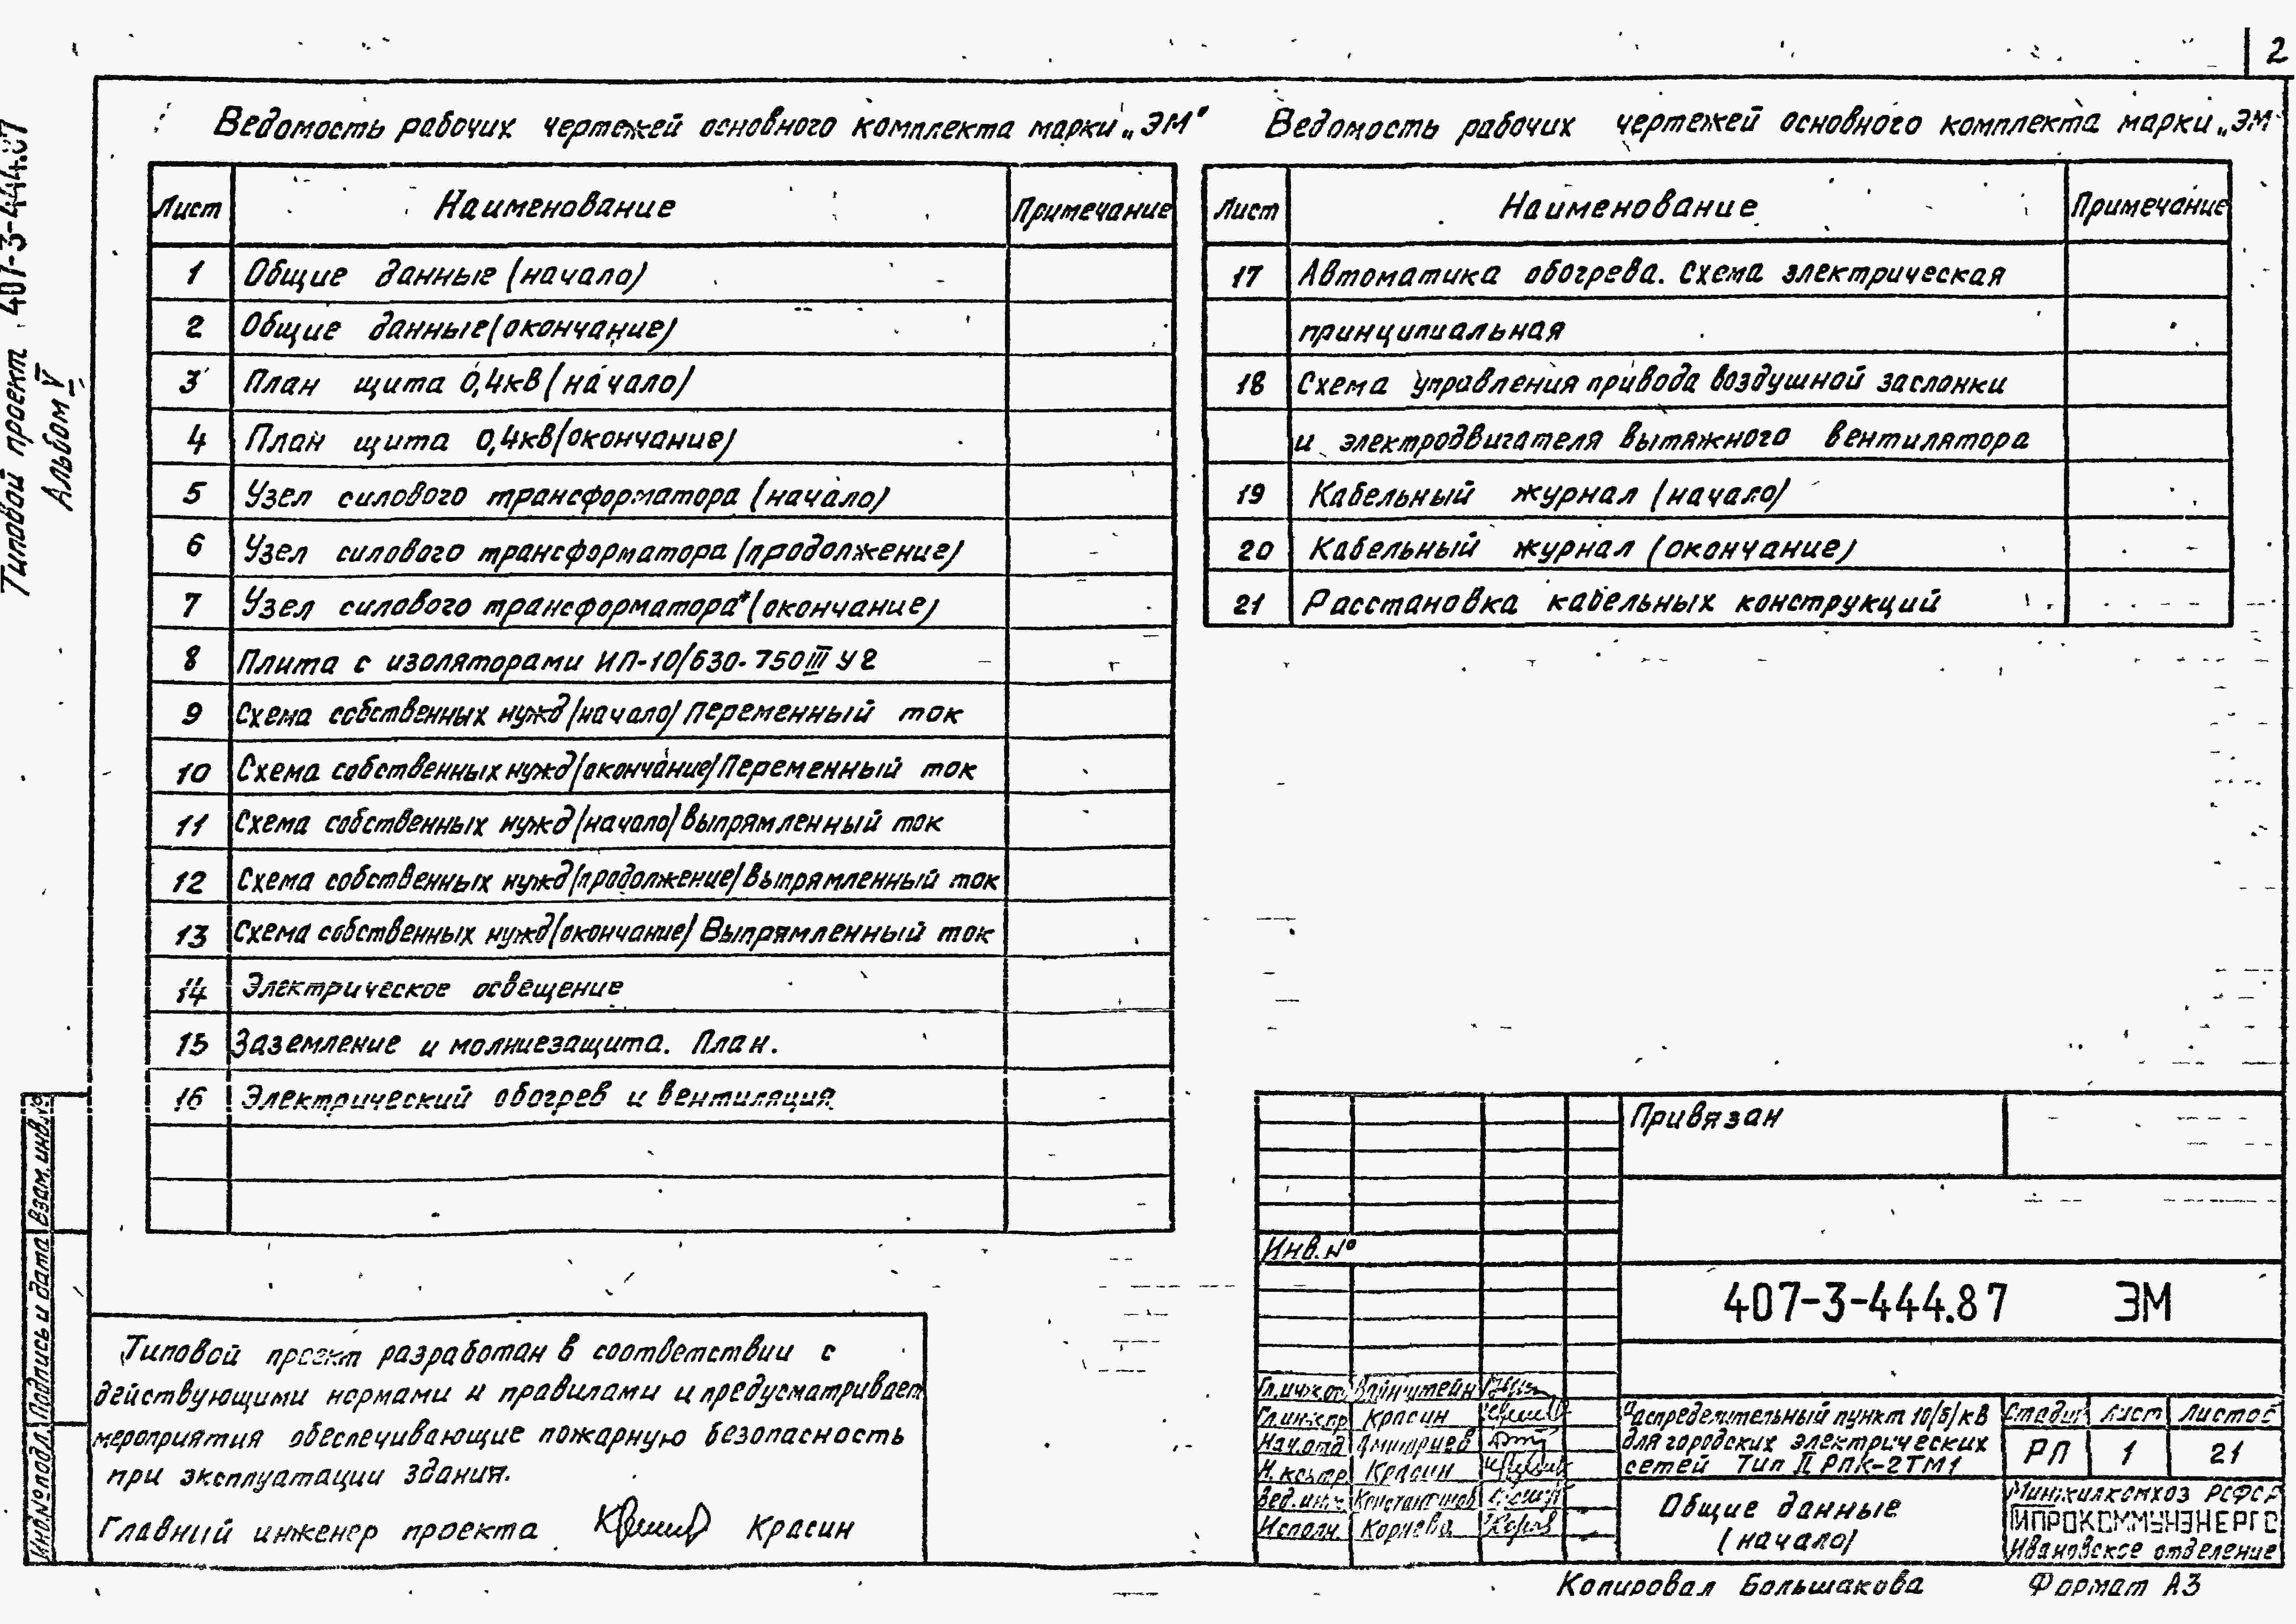 2
Типовой проект 407-3-444.87
Альбом V
Ведомость рабочих чертежей основного комплекта марки „ЭМ"
Лист Наименование Примечание
1 Общие данные (начало)
2 Общие данные (окончание)
3 План щита 0,4кВ (начало)
4 План щита 0,4кВ (окончание)
5 Узел силового трансформатора (начало)
6 Узел силового трансформатора (продолжение)
7 Узел силового трансформатора (окончание)
8 Плита с изоляторами ИП-10/630-750 III У2
9 Схема собственных нужд /начало/ Переменный ток
10 Схема собственных нужд /окончание/ Переменный ток
11 Схема собственных нужд /начало/ Выпрямленный ток
12 Схема собственных нужд /продолжение/ Выпрямленный ток
13 Схема собственных нужд /окончание/ Выпрямленный ток
14 Электрическое освещение
15 Заземление и молниезащита. План.
16 Электрический обогрев и вентиляция
Ведомость рабочих чертежей основного комплекта марки „ЭМ
Лист Наименование Примечание
17 Автоматика обогрева. Схема электрическая
принципиальная
18 Схема управления привода воздушной заслонки
и электродвигателя вытяжного вентилятора
19 Кабельный журнал (начало)
20 Кабельный журнал (окончание)
21 Расстановка кабельных конструкций
Типовой проект разработан в соответствии с
действующими нормами и правилами и предусматривает
мероприятия обеспечивающие пожарную безопасность
при эксплуатации здания.
Главный инженер проекта Красин
Взам. инв. №
Подпись и дата
Инв. № подл.
Привязан
Инв. №
407-3-444.87 ЭМ
Вайнштейн
Гл.инж.пр. Красин
Нач.отд. Дмитриев
Н.контр. Красин
Вед.инж. Константинов
Исполн. Корнева
Распределительный пункт 10/6/кВ
для городских электрических
сетей Тип II РПК-2ТМ1
Стадия Лист Листов
РП 1 21
Общие данные
(начало)
Минжилкомхоз РСФСР
ГИПРОКОММУНЭНЕРГО
Ивановское отделение
Копировал Большакова Формат А3